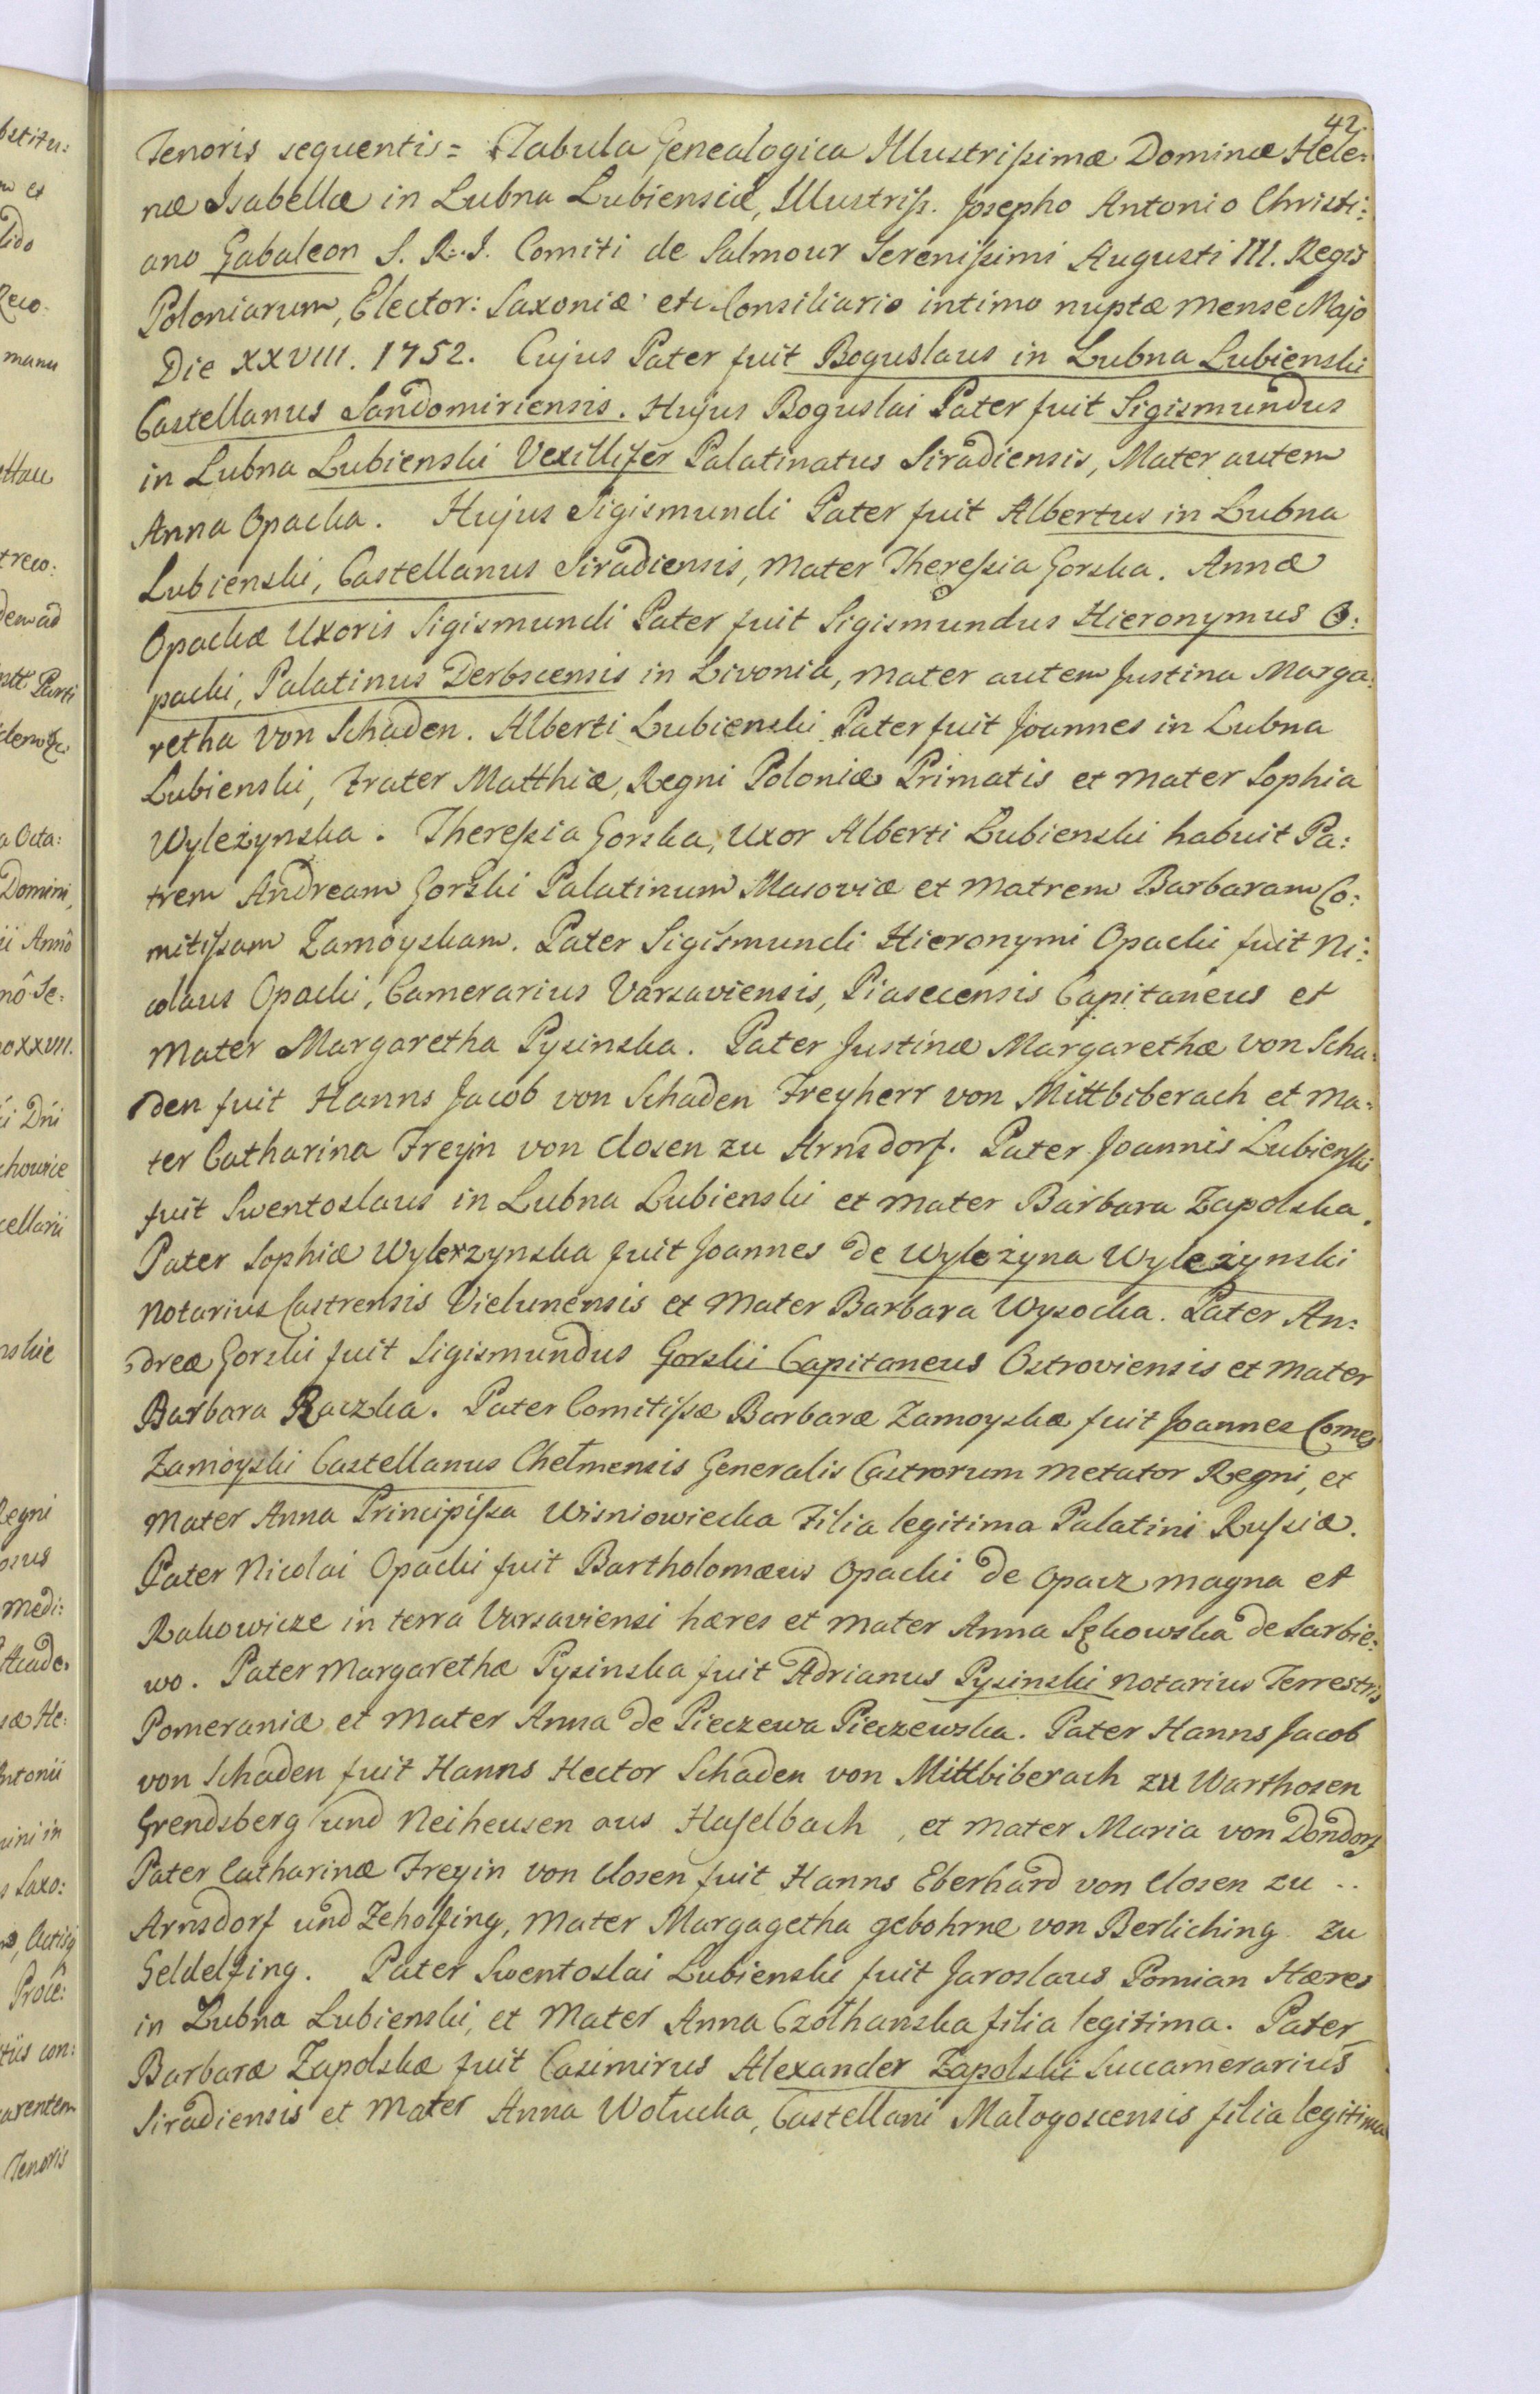 42
Tenoris sequentis = Tabula Genealogica Illustrißimæ Dominæ Hele:
næ Isabellæ in Lubna Lubienskiæ, Illustriß. Josepho Antonio Christi:
ano Gabaleon S. R. I. Comiti de Salmour Serenißimi Augusti III. Regis
Poloniarum, Elector: Saxoniæ etc Consiliario intimo nuptæ mense Majo
Die XXVIII. 1752. Cujus Pater fuit Boguslaus in Lubna Lubienski
Castellanus Sandomiriensis. Hujus Boguslai Pater fuit Sigismundus
in Lubna Lubienski Vexillifer Palatinatus Siradiensis, Mater autem
Anna Opacka. Hujus Sigismundi Pater fuit Albertus in Lubna
Lubienski, Castellanus Siradiensis, Mater Thereßia Gorska. Annæ
Opackæ Uxoris Sigismundi Pater fuit Sigismundus Hieronymus O:
packi, Palatinus Derbscensis in Livonia, mater autem Justina Marga:
retha von Schaden. Alberti Lubienski Pater fuit Joannes in Lubna
Lubienski, Frater Matthiæ, Regni Poloniæ Primatis et mater Sophia
Wyleżynska. Thereßia Gorska, Uxor Alberti Lubienski habuit Pa:
trem Andream Gorski Palatinum Masoviæ et matrem Barbaram Co:
mitißam Zamoyskam. Pater Sigismundi Hieronymi Opacki fuit Ni:
colaus Opacki, Camerarius Varsaviensis, Piasecensis Capitaneus et
Mater Margaretha Pysinska. Pater Justinæ Margarethæ von Scha:
den fuit Hanns Jacob von Schaden Freyherr von Mittbiberach et Ma:
ter Catharina Freyin von Closen zu Arnsdorf. Pater Joannis Lubienski
fuit Swentoslaus in Lubna Lubienski et mater Barbara Zapolska.
Pater Sophiæ Wylerzynska fuit Joannes de Wyleżyna Wyleżynski
Notarius Castrensis Vielunensis et Mater Barbara Wysocka. Pater An:
dreæ Gorski fuit Sigismundus Gorskii Capitaneus Ostroviensis et mater
Barbara Raczka. Pater Comitißæ Barbaræ Zamoyskæ fuit Joannes Comes
Zamoyski Castellanus Chełmensis Generalis Castrorum metator Regni, et
Mater Anna Principißa Wisniowiecka Filia legitima Palatini Rußiæ.
Pater Nicolai Opacki fuit Bartholomæus Opacki de Opacz magna et
Rakowicze in terra Varsaviensi hæres et mater Anna Sękowska de Sarbie:
wo. Pater Margarethæ Pysinska fuit Adrianus Pysinski Notarius Terrestris
Pomeraniæ et mater Anna de Pieczewa Pieczewska. Pater Hanns Jacob
von Schaden fuit Hanns Hector Schaden von Mittbiberach zu Warthosen
Grendsberg und Neiheusen aus Haselbach, et Mater Maria von Dondorf
Pater Catharinæ Freyin von Closen fuit Hanns Eberhard von Closen zu ..
Arnsdorf und Zeholfing, Mater Margagetha gebohrne von Berliching zu
Geldelfing. Pater Swentoslai Lubienski fuit Jaroslaus Pomian Hæres
in Lubna Lubienski, et Mater Anna Czołhanska filia legitima. Pater
Barbaræ Zapolskæ fuit Casimirus Alexander Zapolski Succamerarius
Siradiensis et Mater Anna Wołucka, Castellani Małogoscensis filia legitima